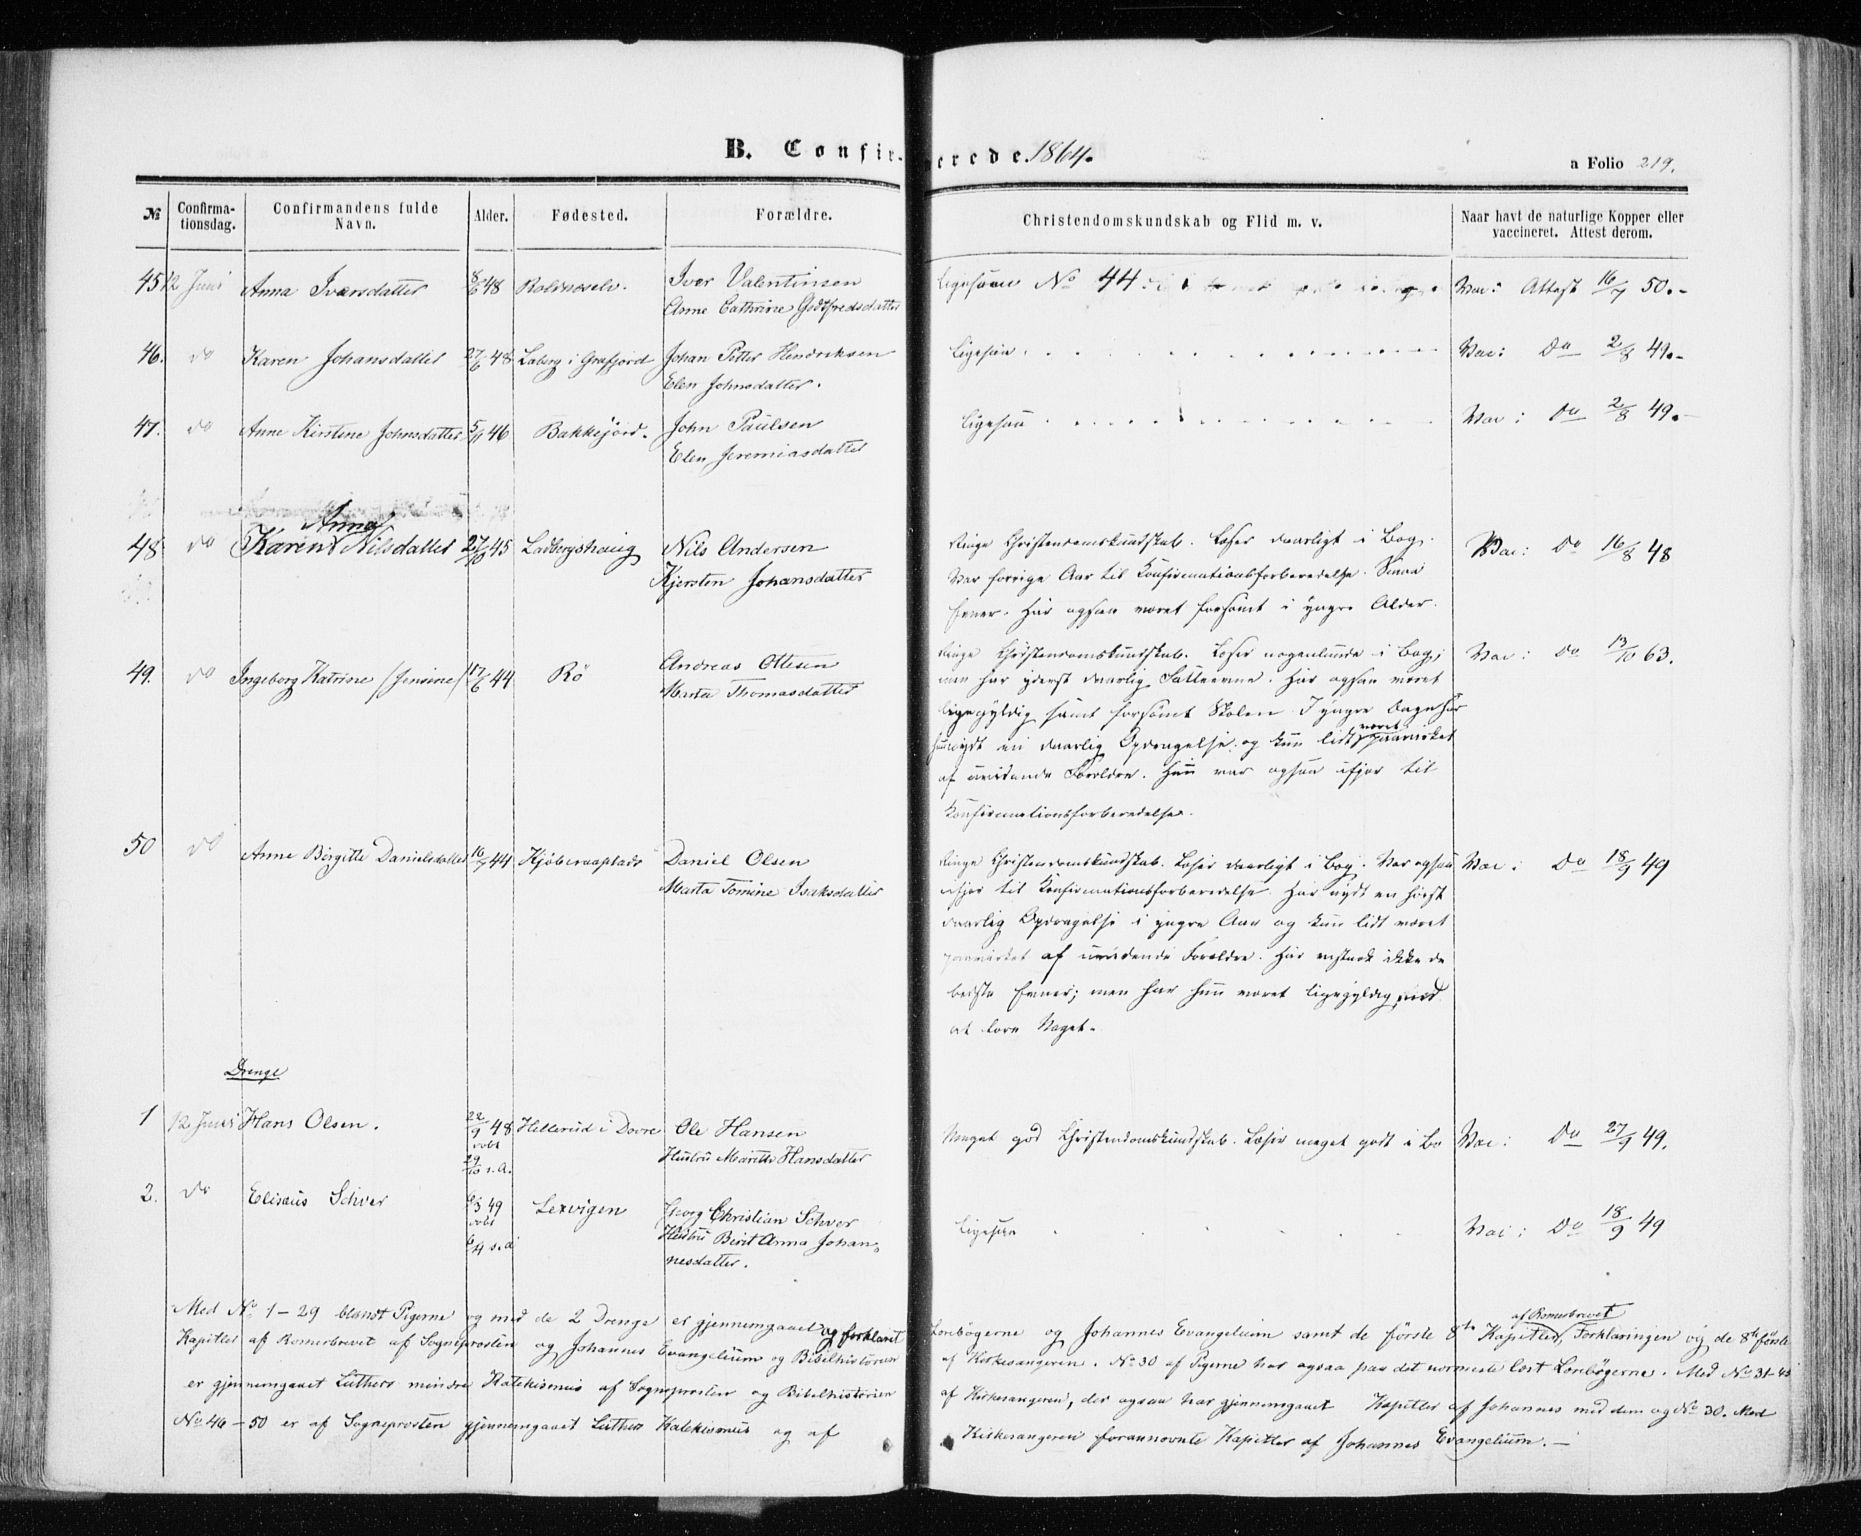 B. Confir- merede 1864.
a Folio 219.
№ Confirma-tionsdag. Confirmandens fulde Navn. Alder. Fødested. Forældre. Christendomskundskab og Flid m. v. Naar havt de naturlige Kopper eller vaccineret. Attest derom.
45 12 Juni Anna Ivarsdatter 8/6 48 Rolvsoselv. Ivar Valentinsen Ligesaa No 44. Vac: Attest 16/7 50.-
Anne Cathrine Godtfredsdatter
46. do Karen Johansdatter 27/6 48 Laberg i Grafjord Johan Petter Hendriksen Ligesaa. Vac: Do 2/8 49.-
Elen Johnsdatter.
47. do Anne Kirstine Johnsdatter 5/11 46 Bakkejord. John Paulsen Ligesaa Vac: Do 2/8 49.-
Elen Jeremiasdatter
Anna
48 do Karen Nilsdatter 27/10 45 Ladbergshaug Nils Andersen Ringe Christendomskundskab. Læser daarligt i Bog. Vac: Do 16/8 48
Kjersten Johansdatter Var forrige Aar til Konfirmationsforberedelse. Smaa
Evner. Har ogsaa været forsømt i yngre Alder.
49. do Ingeborg Katrine (Jensine) 17/6 44 Rö Andreas Ottesen Ringe Christendomskundskab. Læser nogenlunde i Bog; Vac: Do 13/10 63.
Marta Thomasdatter men har yderst daarlig Fatteevne. Har ogsaa været
ligegyldig samt forsømt Skolen. I yngre Dage har
hun nydt en daarlig Opdragelse og kun lidt været paavirket
af uvidende Forældre. Hun var ogsaa ifjor til
Konfirmationsforberedelse.
50 do Anne Birgitte Danielsdatter 16/7 44 Kjöbenaaplads Daniel Olsen Ringe Christendomskundskab. Læser daarligt i Bog. Var ogsaa Vac: Do 18/9 49
Marta Tomine Isaksdatter ifjor til Konfirmationsforberedelse. Har nydt en høist
daarlig Opdragelse i yngre Aar og kun lidt været
paavirket af uvidende Forældre. Har vistnok ikke de
bedste Evner; men har hun været ligegyldig med
at lære Noget.
Drenge
1 12 Juni Hans Olsen. 22/9 48 döbt 29/10 s.A. Hellerud i Dovre Ole Hansen Meget god Christendomskundskab. Læser meget godt i Bo Vac: Do 27/9 49.
Hustru Maritte Hansdatter
2. do Elisæus Schver 6/3 49 döbt 6/4 s.a Lexvigen Georg Christian Schver Ligesaa Vac: Do 18/9 49
Hustru Berit Anna Johan-
nesdatter.
Med No 1-29 blandt Pigerne og med de 2 Drenge er gjennemgaaet og forklaret Lærebøgerne og Johannes Evangelium samt de første 8te Kapitler af Romerbrevet, Forklaringen og de 8te første
Kapitler af Romerbrevet af Sogneprosten og Johannes Evangelium og Bibelhistorien af Kirkesangeren. No 30 af Pigerne har ogsaa paa det nærmeste læst Lærebøgerne. Med No 31-45
er gjennemgaaet Luthers mindre Katekismus af Sogneprosten og Bibelhistorien af Kirkesangeren, der ogsaa har gjennemgaaet Kapitler af Johannes med dem og No 30. Med
No 46-50 er af Sogneprosten gjennemgaaet Luthers Katekismus og af Kirkesangeren forannævnte Kapitler af Johannes Evangelium.-